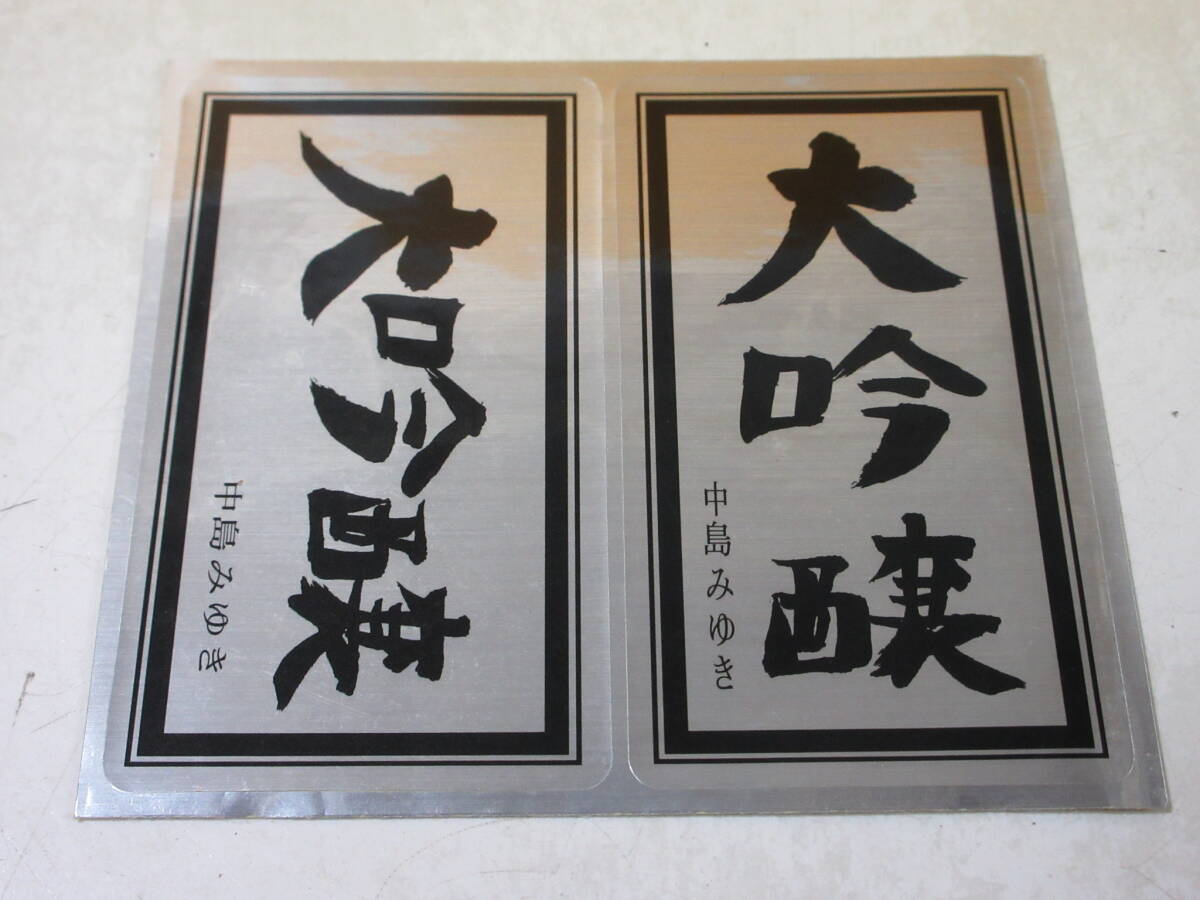 大吟醸
中島みゆき
大吟醸
中島みゆき